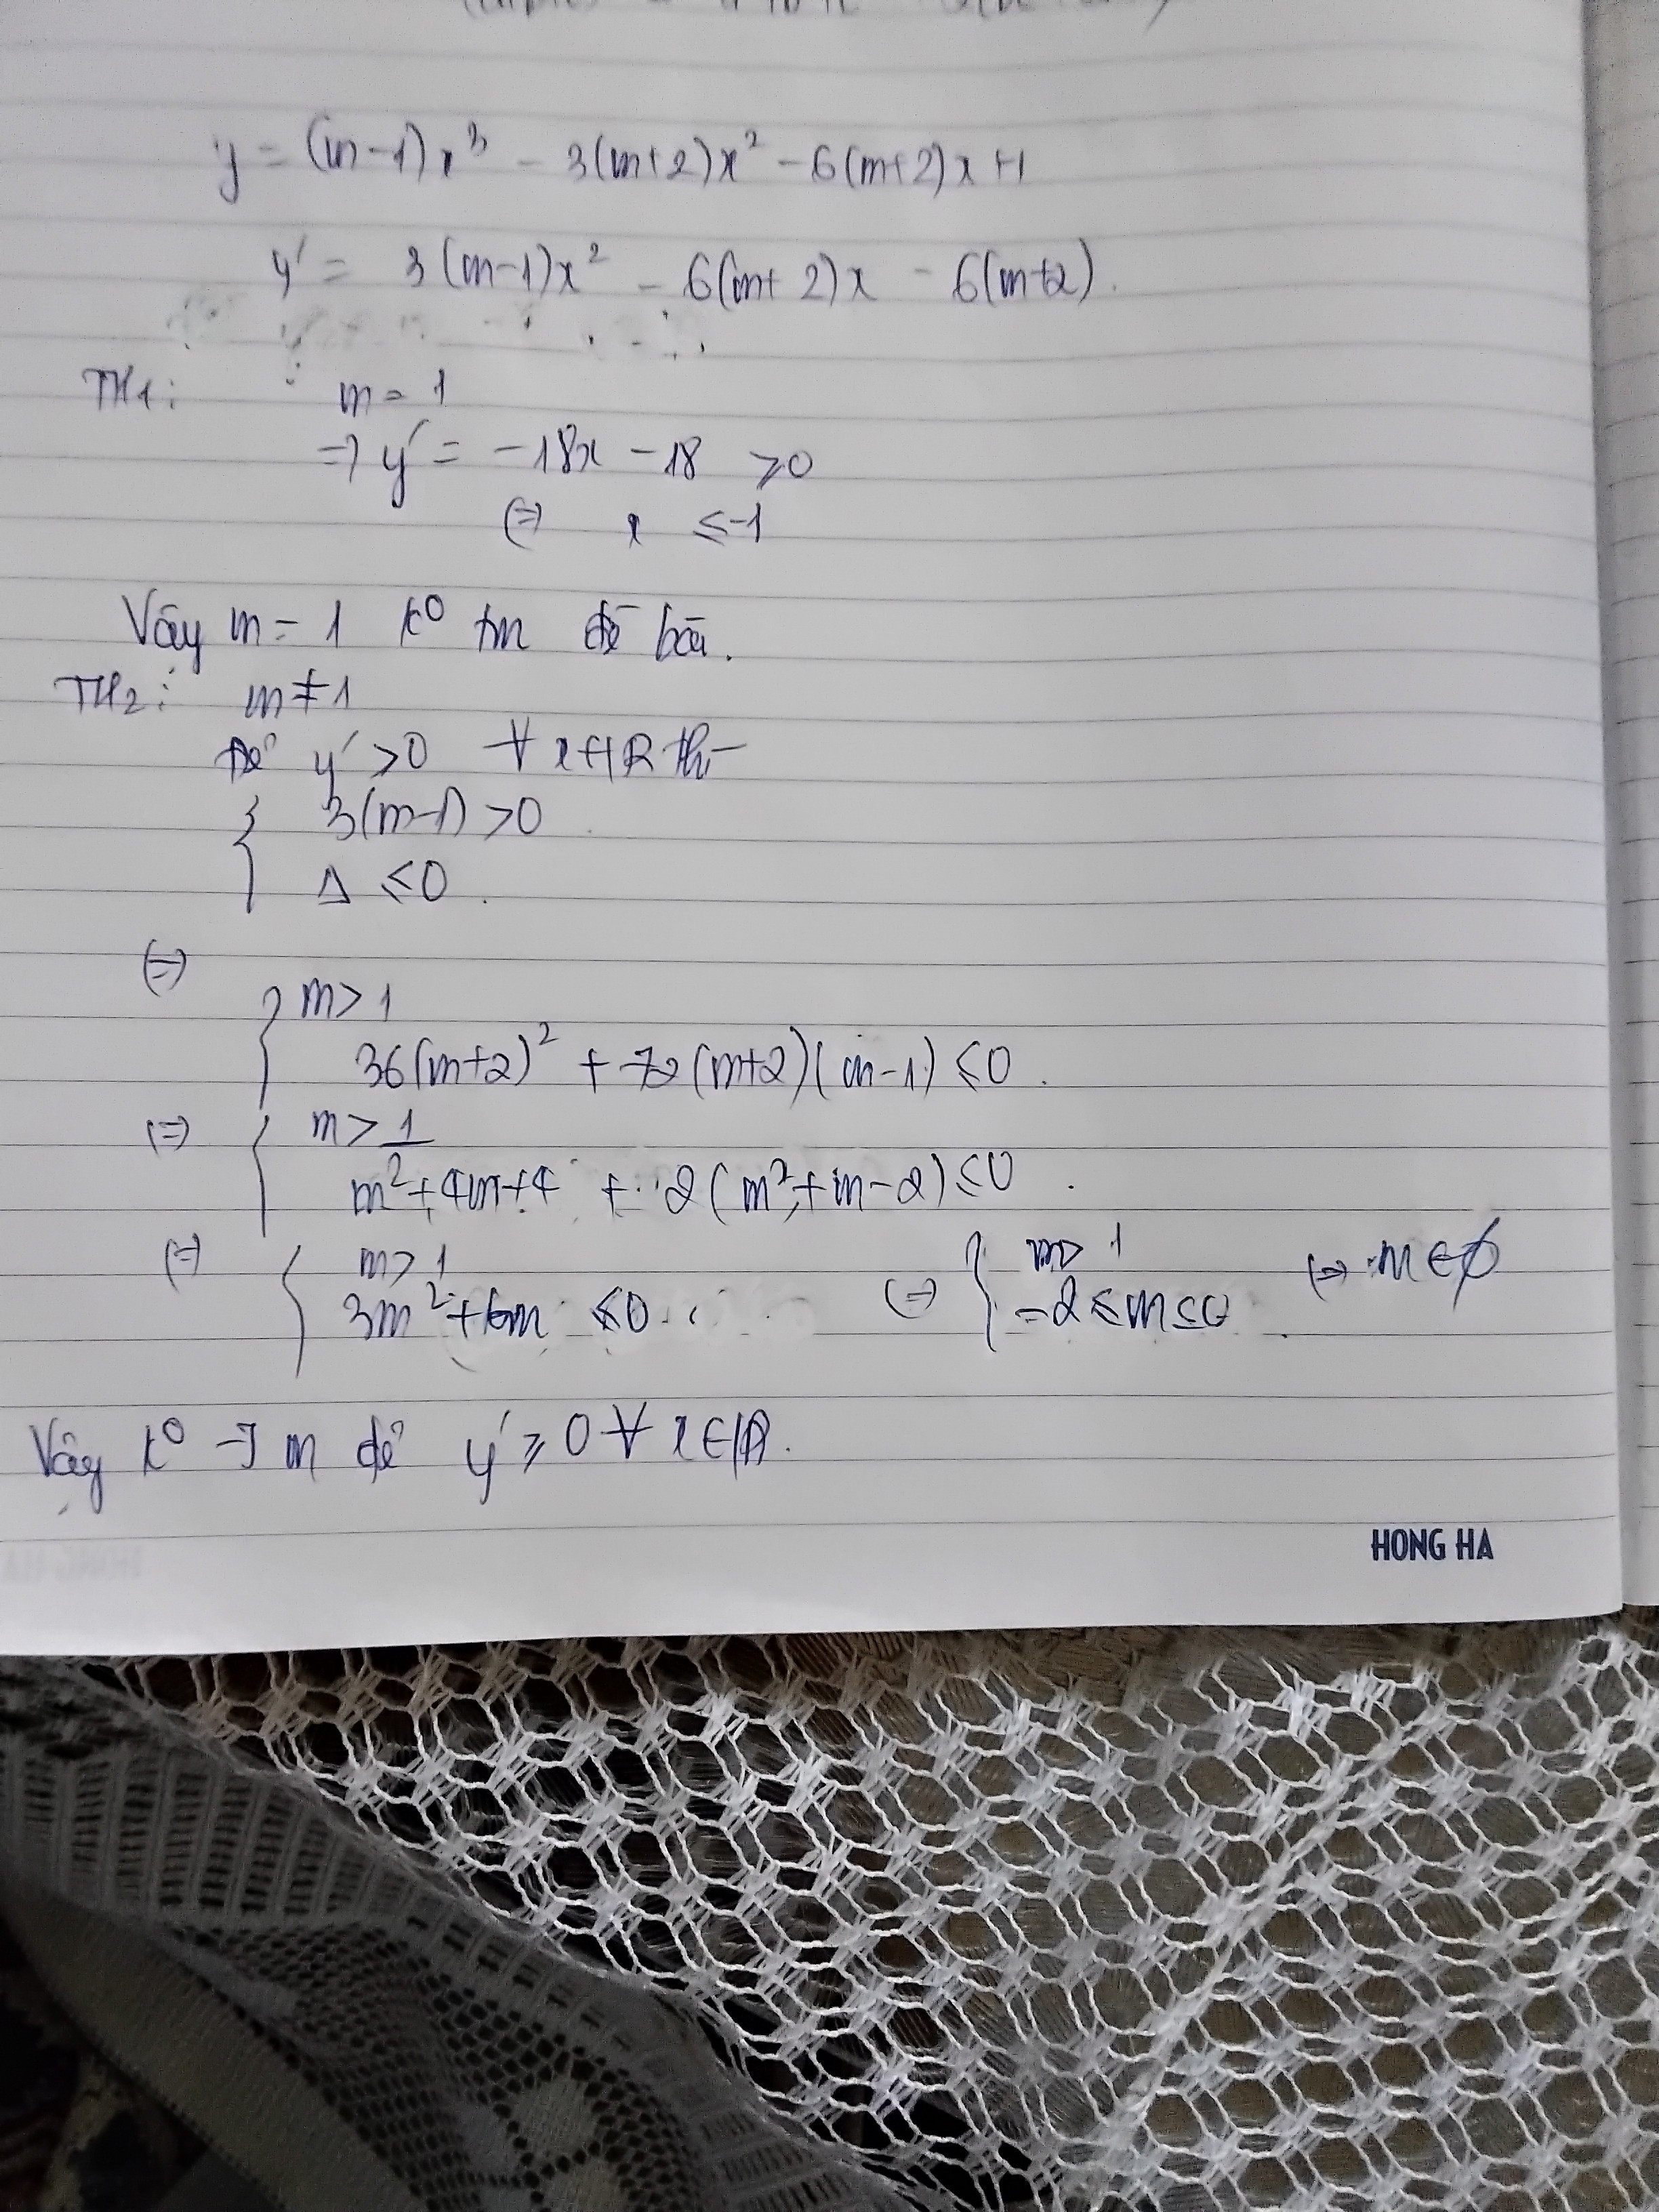 y = (m-1)x³ - 3(m+2)x² - 6(m+2)x + 1
y' = 3(m-1)x² - 6(m+2)x - 6(m+2).
TH1: m = 1
=> y' = -18x - 18 ≥0
(=) x ≤ -1
Vậy m = 1 k⁰ tm đề bài.
TH2: m ≠ 1
Để y' >0 ∀ x ∈ IR thì
{ 3(m-1) >0
Δ ≤0.
(=)
{ m > 1
36(m+2)² + 72(m+2)(m-1) ≤0.
(=) { m > 1
m² + 4m + 4 + 2(m² + m - 2) ≤0.
(=) { m > 1 (=) { m > 1 (=) m ∈ ∅
3m² + 6m ≤0. -2 ≤ m ≤ 0.
Vậy k⁰ ∃ m để y' ≥ 0 ∀ x ∈ IR.
HONG HA